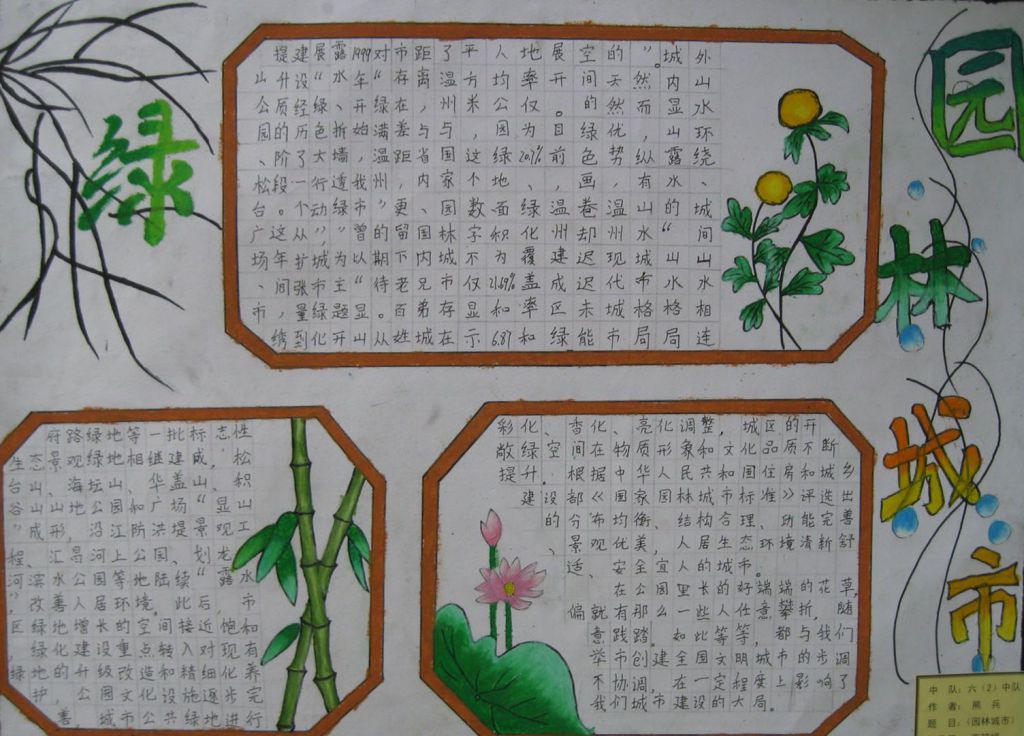 绿
园林城市
外山水环绕、城间山水相连
城内显山露水的“山水格局
”。然而，纵有山水城市格局
的天然优势，温州现代城市
空间的绿色画卷却迟迟未能
展开。目前，温州建成区绿
地率仅为20.7%、绿化覆盖率和
人均公园绿地面积为21.69%和6.87
平方米，这个数字不仅显示
了温州与国家园林城市存在
距离，与省内、国内兄弟城
市存在差距，更留下老百姓
对“绿满温州”的期待。从
1999年开始，我市曾以“显山
露水、拆墙透绿”为主题开
展“绿色大行动”，城市绿化
建设经历了一个从扩张量到
提升质的阶段。这年间，
山公园、松台广场、市
府路绿地等一批标志性
生态景观绿地相继建成，松
台山、海坛山、华盖山、积
谷山山地公园和广场“显山
”成形，沿江防洪堤景观工
程、汇昌河上公园、划龙
河滨水公园等地陆续“露水
”，改善人居环境。此后，市
区绿地增长的空间接近饱和
，绿化建设重点转入对现有
绿地的升级改造和精细化养
护，公园文化设施逐步完
善，城市公共绿地进行
彩化、香化、亮化调整，城区的开
敞绿空间在物质形象和文化品质不断
提升。根据中华人民共和国住房和城乡
建设部《国家园林城市标准》评选出
的分布均衡、结构合理、功能完善
、景观优美，人居生态环境清新舒
适、安全宜人的城市。
在公园里长的好端端的花草，
偏就有那么一些人任意攀折，随
意践踏。如此等等，都与我们
举市创建全国文明城市的步调
不协调，在一定程度上影响了
我们城市建设的大局。
中 队：六（2）中队
作 者：熊 兵
题 目：《园林城市》